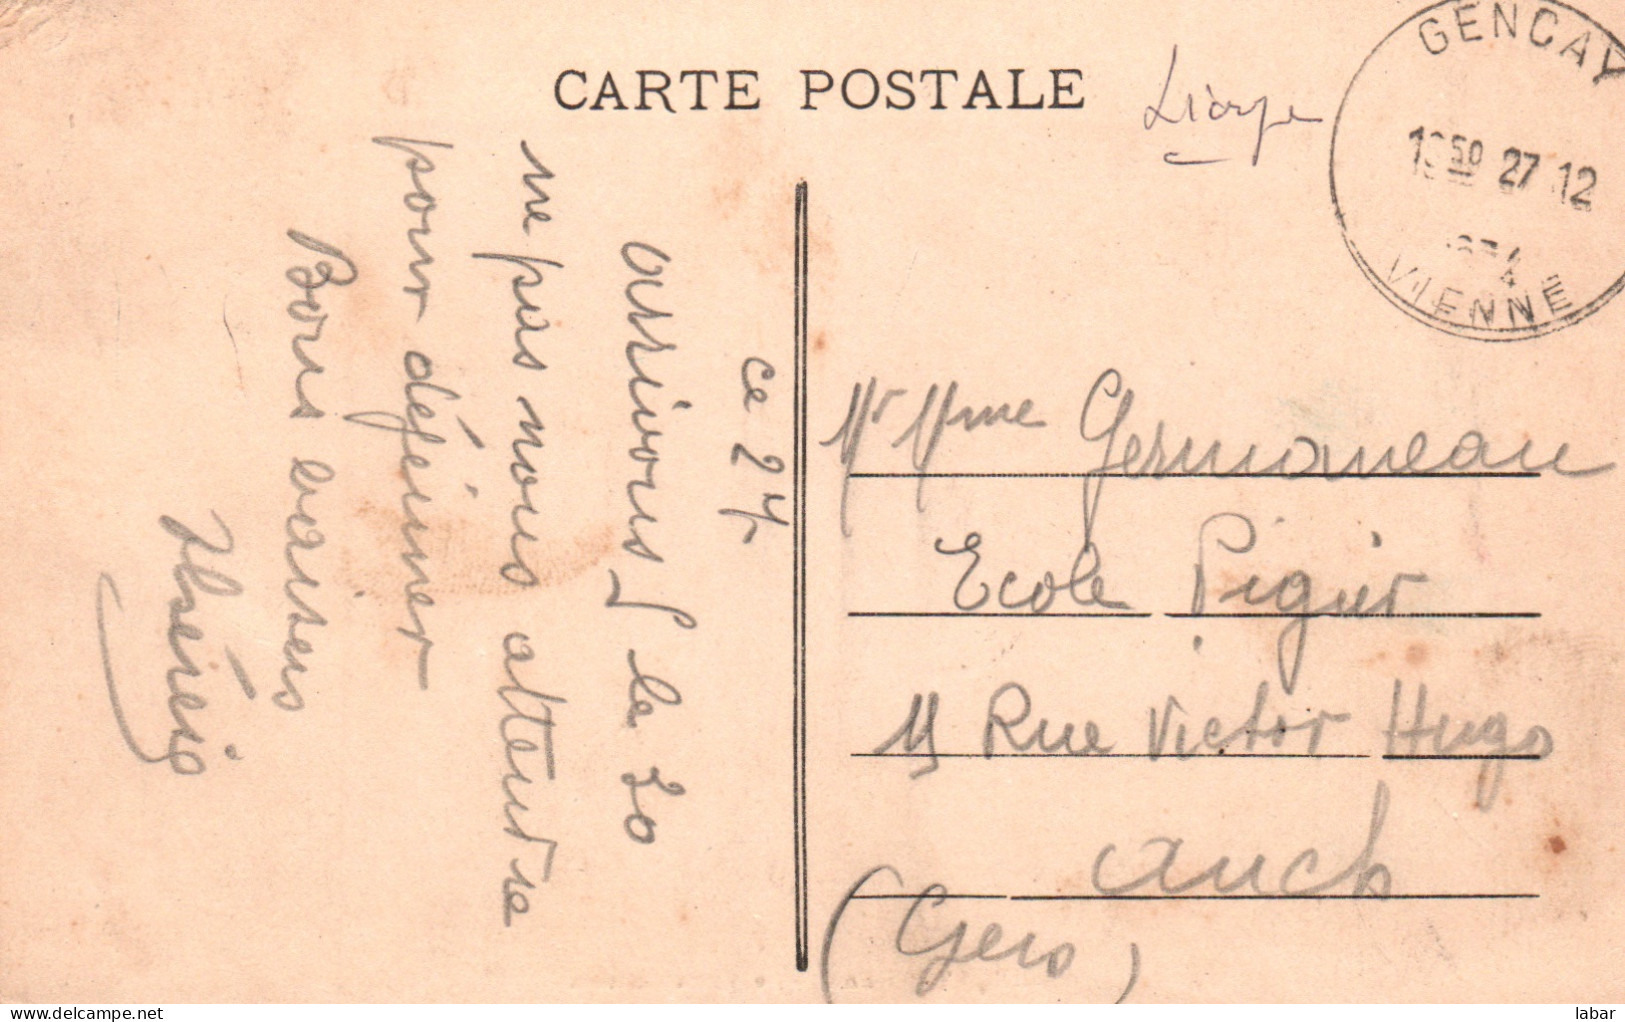 CARTE POSTALE
GENCAY
27 12
VIENNE
ce 27
arrivons le 30
ne pas nous attendre
pour déjeuner
Bons baisers
Mr Mme Germaneau
Ecole Pigier
11 Rue Victor Hugo
Auch
(Gers)
delcampe.net
labar